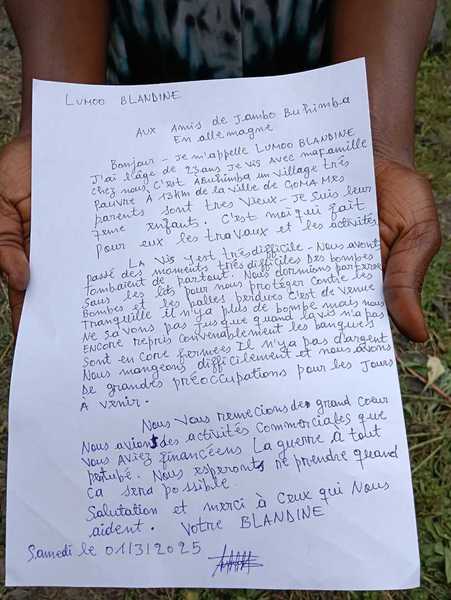 LUMOO BLANDINE
AUX Amis de Jambo Buhimba
En allemagne
Bonjour - Je m'appelle LUMOO BLANDINE
J'ai l'âge de 23ans Je vis avec ma famille
chez nous. C'est à Buhimba un village très
Pauvre à 13km de la ville de GOMA MES
parents sont très vieux - Je suis leur
7eme enfant. C'est moi qui fait
pour eux les travaux et les activités
La vis y est très difficile - Nous avont
passé des moments très difficiles Des bombes
tombaient de partout. Nous dormions par terre
Sous les lits pour nous protéger contre les
Bombes et les balles perdues C'est de venue
tranquille il n'ya plus de bombe mais nous
Ne savons pas jusque quand la vis n'a pas
ENCORE repris convenablement les banques
Sont en core fermées Il n'ya pas d'argent
Nous mangeons difficilement et nous avons
De grandes préoccupations pour les jours
À venir.
Nous vous remecions de grand coeur
Nous avions des activités commerciales que
vous AVIEZ financéens La guerre à tout
pertubé. Nous esperons re prendre quand
ça send possible.
Salutation et merci à ceux qui Nous
aident. Votre BLANDINE
Samedi le 01/3/2025